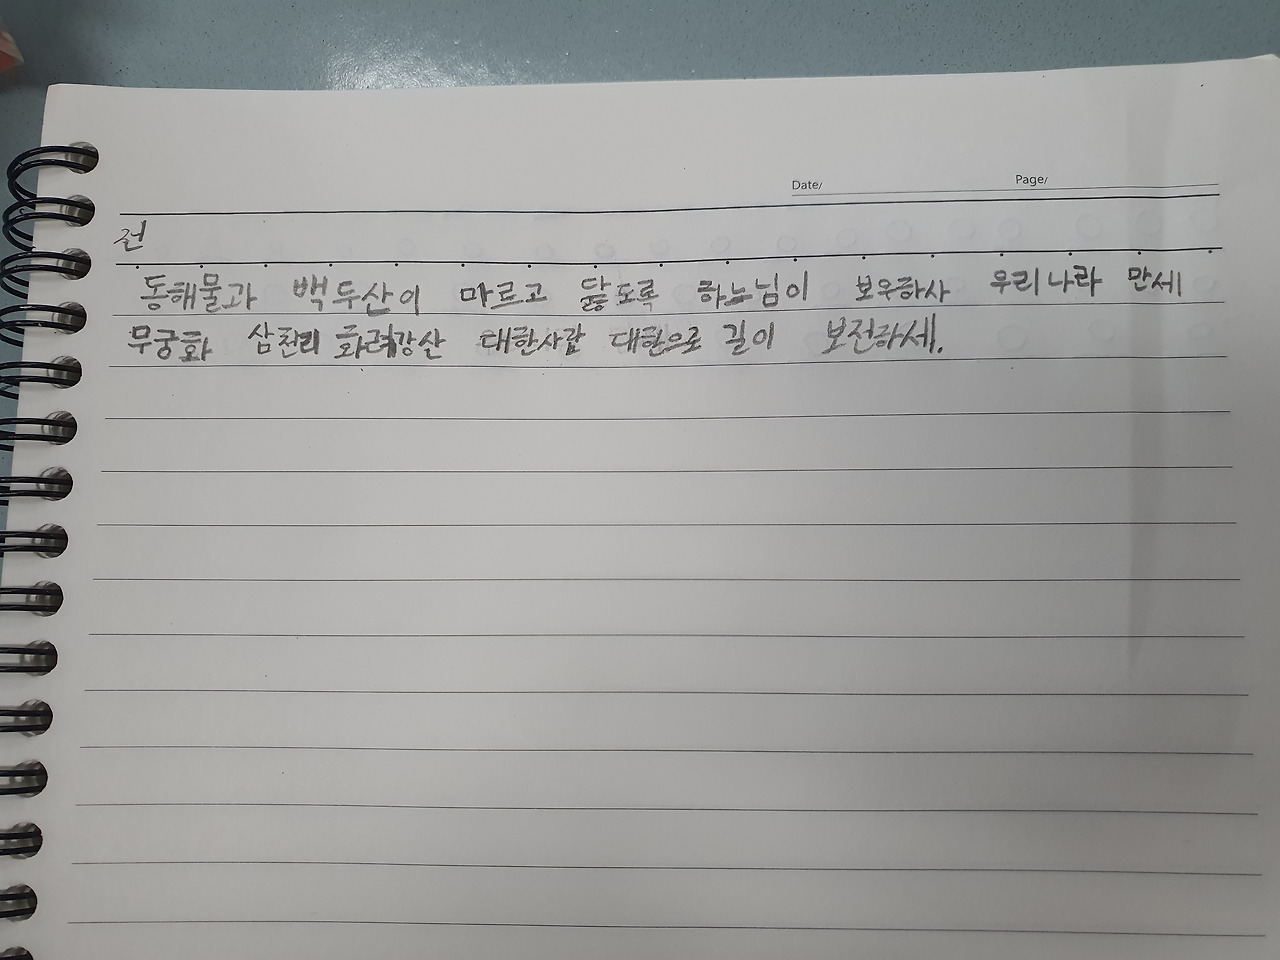 Date/ Page/
전
동해물과 백두산이 마르고 닳도록 하느님이 보우하사 우리나라 만세
무궁화 삼천리 화려강산 대한사람 대한으로 길이 보전하세.